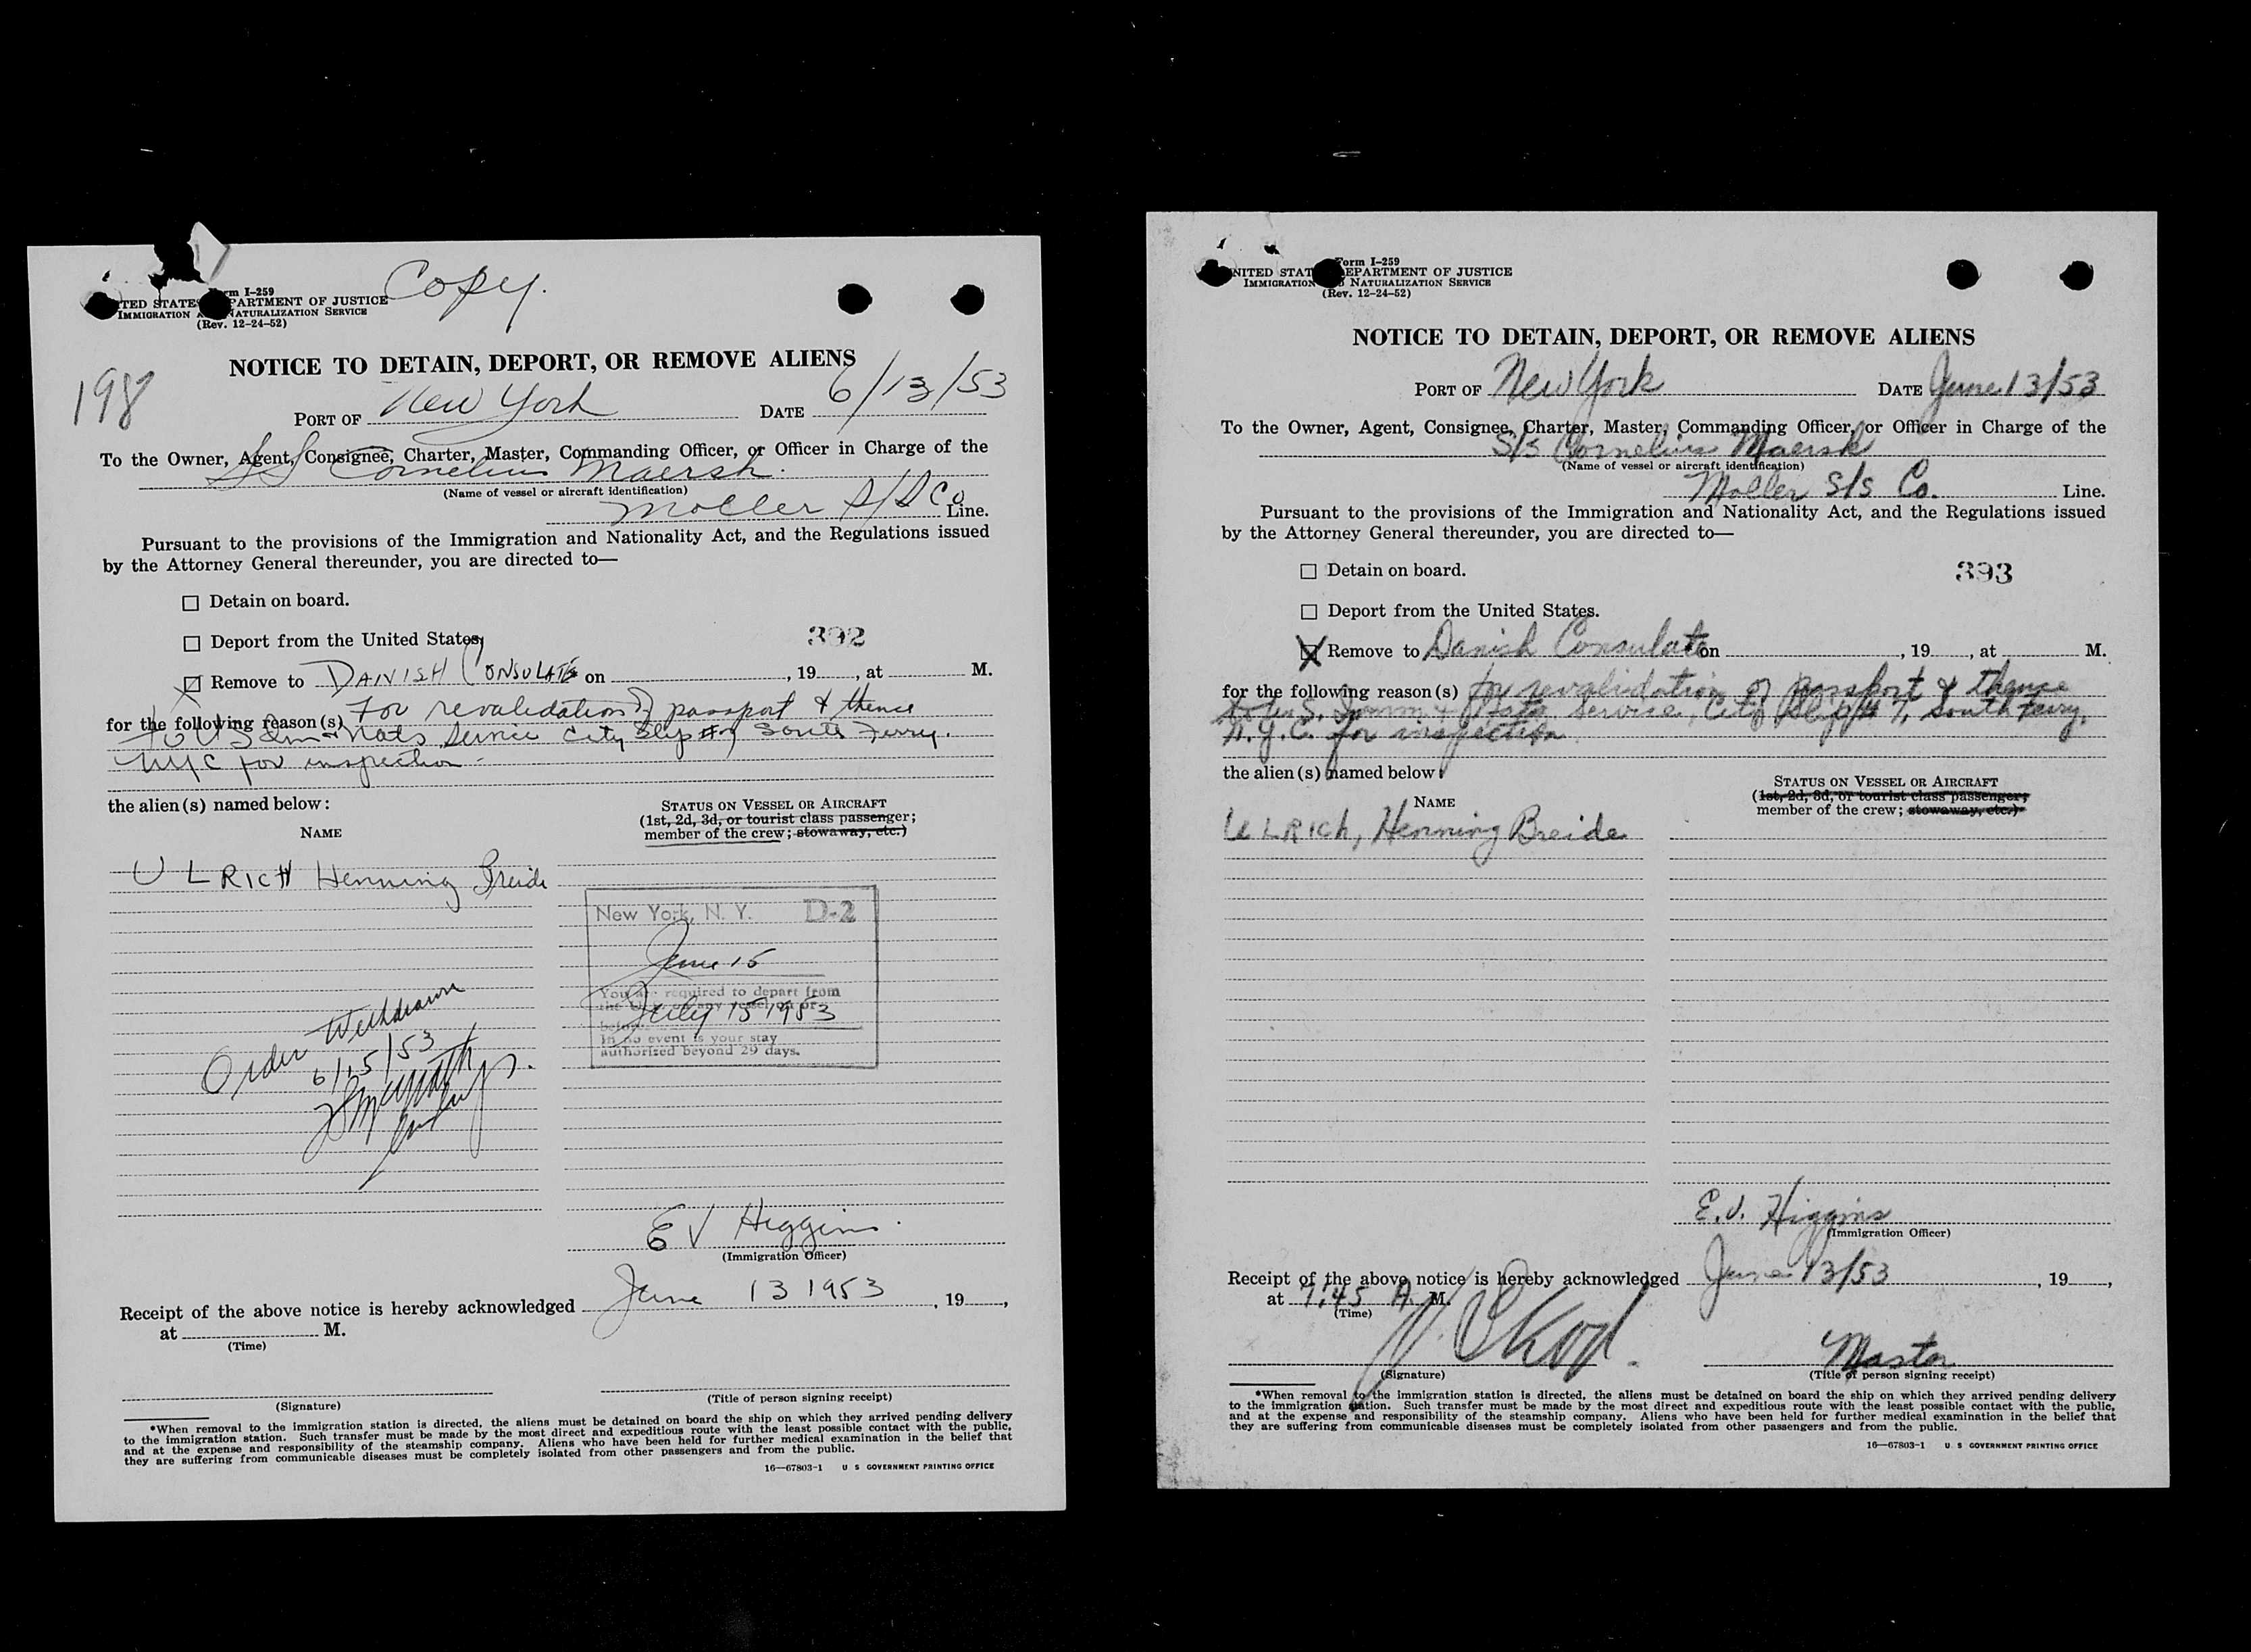 Copy.
Form I-259
UNITED STATES DEPARTMENT OF JUSTICE
IMMIGRATION AND NATURALIZATION SERVICE
(Rev. 12-24-52)
NOTICE TO DETAIN, DEPORT, OR REMOVE ALIENS
198
PORT OF New York DATE 6/13/53
To the Owner, Agent, Consignee, Charter, Master, Commanding Officer, or Officer in Charge of the
SS Cornelius Maersk.
(Name of vessel or aircraft identification)
Moller S/S Co. Line.
Pursuant to the provisions of the Immigration and Nationality Act, and the Regulations issued
by the Attorney General thereunder, you are directed to—
☐ Detain on board.
☐ Deport from the United States. 392
☒ Remove to DANISH CONSULATE on , 19 , at M.
for the following reason(s) For revalidation of passport & thence
to U S Imm & Nats Service City Slip #7 South Ferry.
NYC for inspection -
the alien(s) named below:
STATUS ON VESSEL OR AIRCRAFT
(1st, 2d, 3d, or tourist class passenger;
member of the crew; stowaway, etc.)
NAME
ULRICH Henning Breide
New York, N. Y. D-2
June 15
You are required to depart from
the U. any vessel on or
before July 15 1953
In no event is your stay
authorized beyond 29 days.
Order Withdrawn
6/15/53
E V Higgins.
(Immigration Officer)
Receipt of the above notice is hereby acknowledged June 13 1953 , 19 ,
at M.
(Time)
(Signature) (Title of person signing receipt)
*When removal to the immigration station is directed, the aliens must be detained on board the ship on which they arrived pending delivery
to the immigration station. Such transfer must be made by the most direct and expeditious route with the least possible contact with the public,
and at the expense and responsibility of the steamship company. Aliens who have been held for further medical examination in the belief that
they are suffering from communicable diseases must be completely isolated from other passengers and from the public.
16—67803-1 U S GOVERNMENT PRINTING OFFICE
Form I-259
UNITED STATES DEPARTMENT OF JUSTICE
IMMIGRATION AND NATURALIZATION SERVICE
(Rev. 12-24-52)
NOTICE TO DETAIN, DEPORT, OR REMOVE ALIENS
PORT OF New York DATE June 13/53
To the Owner, Agent, Consignee, Charter, Master, Commanding Officer, or Officer in Charge of the
S/S Cornelius Maersk
(Name of vessel or aircraft identification)
Moller S/S Co. Line.
Pursuant to the provisions of the Immigration and Nationality Act, and the Regulations issued
by the Attorney General thereunder, you are directed to—
☐ Detain on board. 393
☐ Deport from the United States.
☒ Remove to Danish Consulate on , 19 , at M.
for the following reason(s) for revalidation of passport & thence
to U.S. Imm & Natz Service, City Slip # 7, South Ferry,
N.Y.C. for inspection
the alien(s) named below:
STATUS ON VESSEL OR AIRCRAFT
(1st, 2d, 3d, or tourist class passenger;
member of the crew; stowaway, etc.)
NAME
ULRICH, Henning Breide
E.V. Higgins
(Immigration Officer)
Receipt of the above notice is hereby acknowledged June 13/53 , 19 ,
at 7:45 A. M.
(Time)
Master
(Signature) (Title of person signing receipt)
*When removal to the immigration station is directed, the aliens must be detained on board the ship on which they arrived pending delivery
to the immigration station. Such transfer must be made by the most direct and expeditious route with the least possible contact with the public,
and at the expense and responsibility of the steamship company. Aliens who have been held for further medical examination in the belief that
they are suffering from communicable diseases must be completely isolated from other passengers and from the public.
16—67803-1 U S GOVERNMENT PRINTING OFFICE